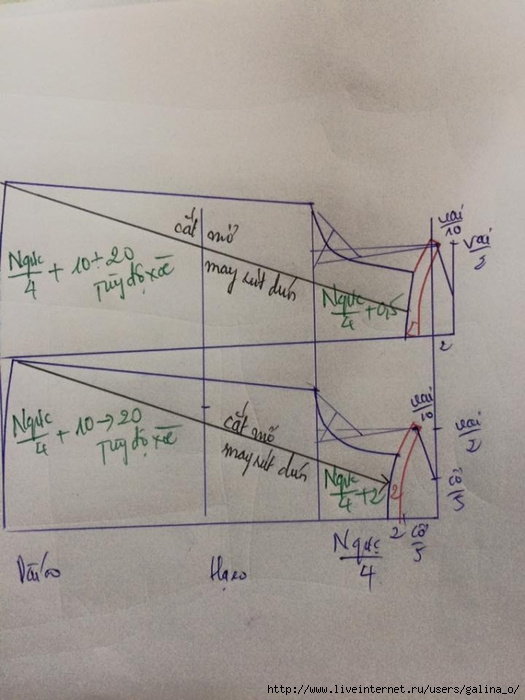 vai/10
Vai/2
cắt mở
Ngực/4 + 10 ÷ 20
Tùy độ xòe
may rút dún
Ngực/4 + 0,5
2
vai/10
Ngực/4 + 10 → 20
Tùy độ xòe
cắt mở
may rút dún
vai/2
Ngực/4 + 2
2
Cổ/5
2
Cổ/5
Ngực/4
Dài áo
Hạ eo
http://www.liveinternet.ru/users/galina_o/